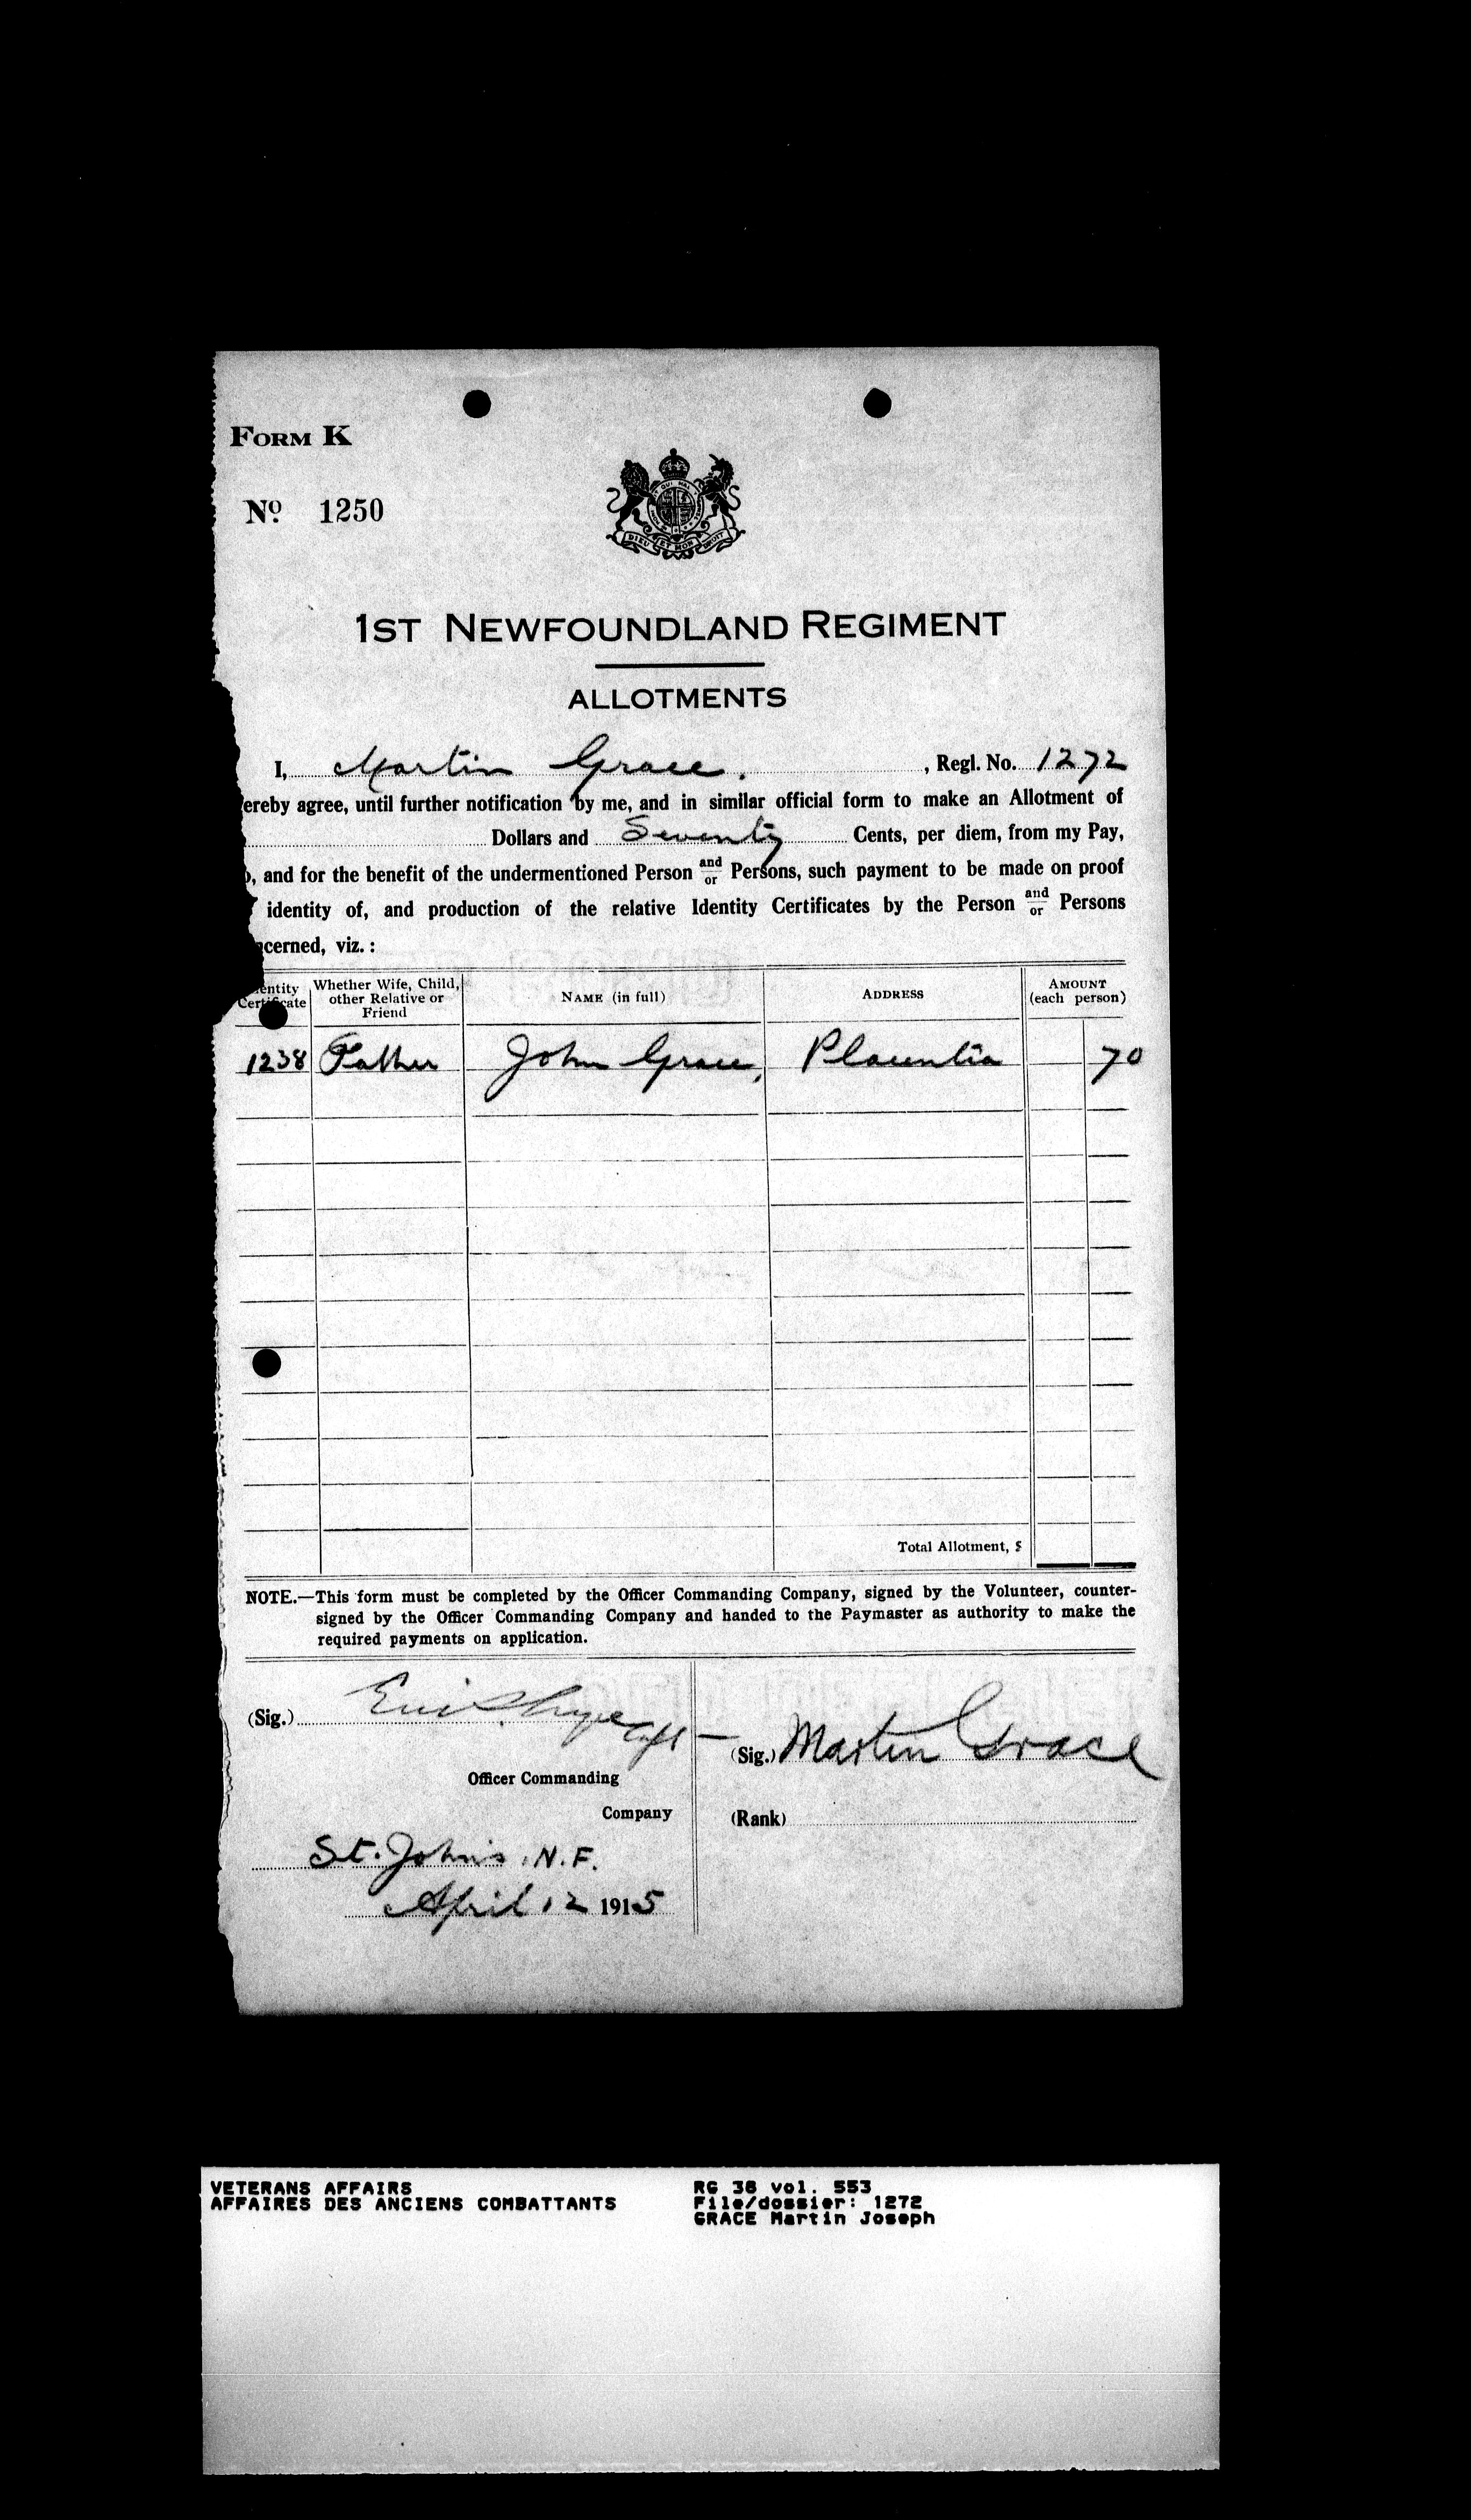 FORM K
No. 1250
QUI MAL
DIEU ET MON DROIT
1ST NEWFOUNDLAND REGIMENT
ALLOTMENTS
I, Martin Grace. , Regl. No. 1272
ereby agree, until further notification by me, and in similar official form to make an Allotment of
Dollars and Seventy Cents, per diem, from my Pay,
, and for the benefit of the undermentioned Person and/or Persons, such payment to be made on proof
identity of, and production of the relative Identity Certificates by the Person and/or Persons
cerned, viz. :
entity Certificate | Whether Wife, Child, other Relative or Friend | NAME (in full) | ADDRESS | AMOUNT (each person)
1238 | Father | John Grace, | Placentia | 70
Total Allotment, $
NOTE.—This form must be completed by the Officer Commanding Company, signed by the Volunteer, counter-
signed by the Officer Commanding Company and handed to the Paymaster as authority to make the
required payments on application.
(Sig.) Capt
(Sig.) Martin Grace
Officer Commanding
Company
(Rank)
St. John's, N.F.
April 12 1915
VETERANS AFFAIRS
AFFAIRES DES ANCIENS COMBATTANTS
RG 38 vol. 553
File/dossier: 1272
GRACE Martin Joseph